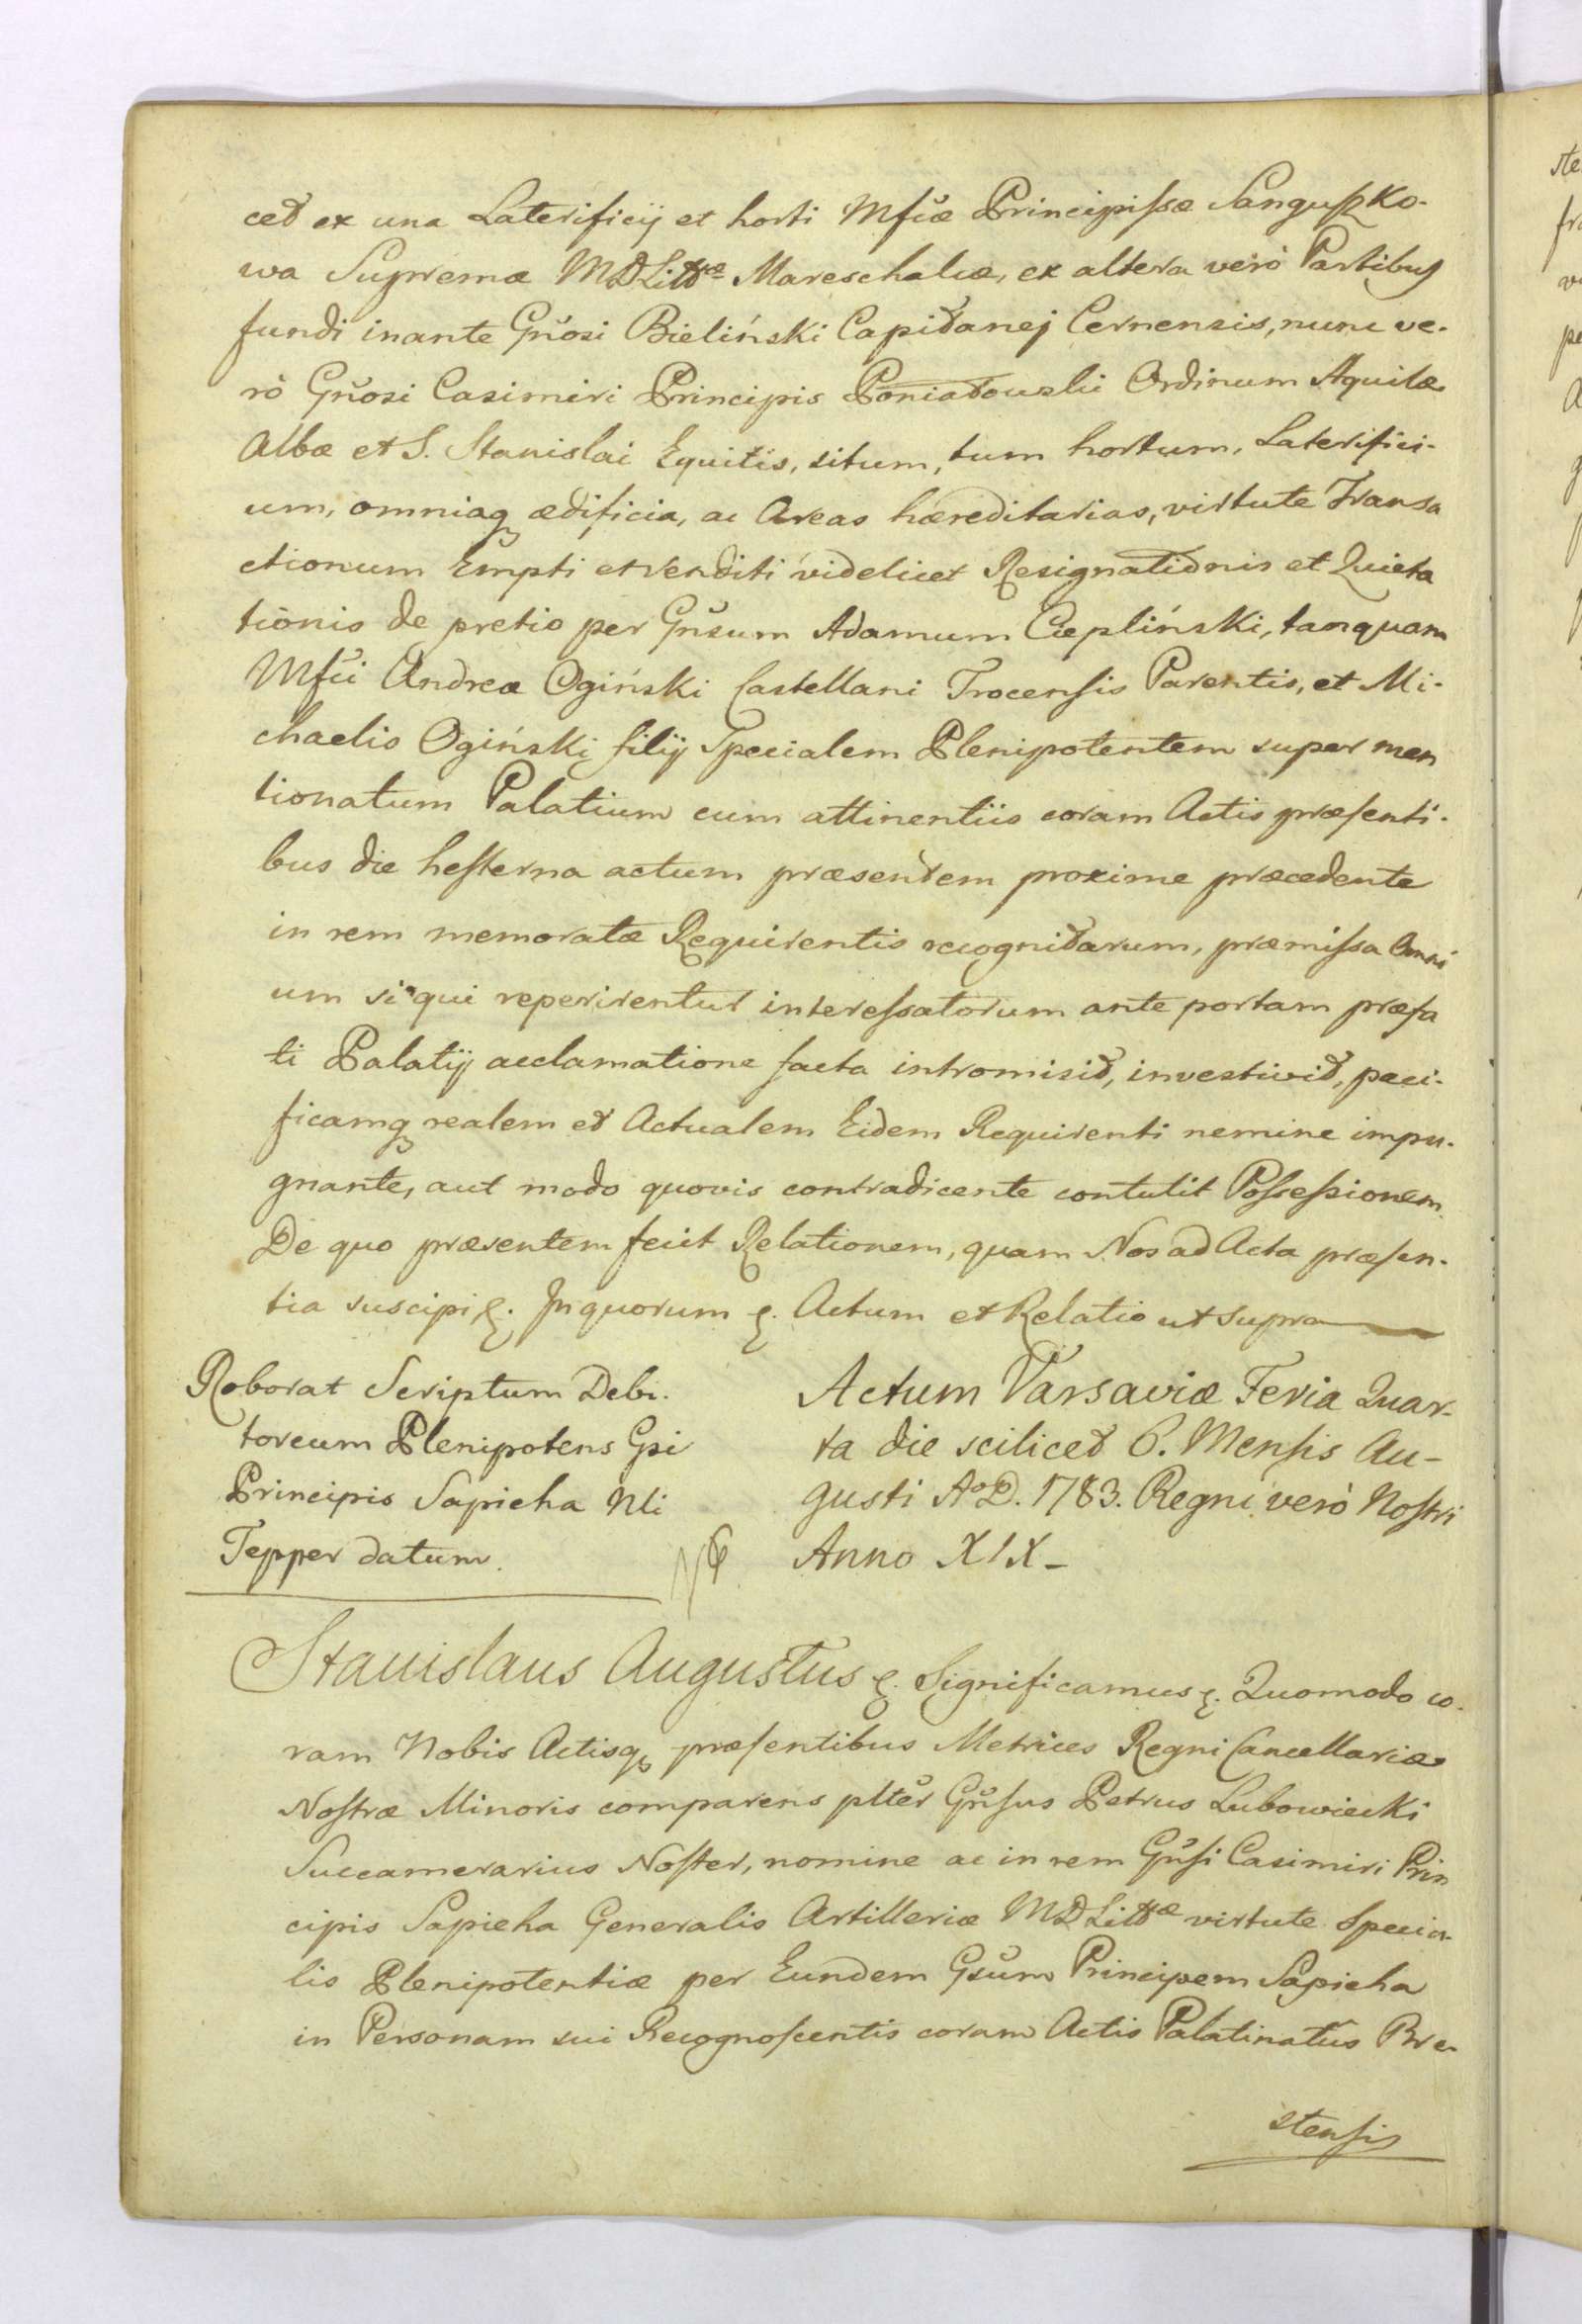 cet ex una Laterificij et horti Mfcæ Principissæ Sanguszko-
wa Supremæ MDLittæ Mareschalcæ, ex altera verò Partibus
fundi inante Gnosi Bieliński Capitanej Cernensis, nunc ve-
rò Gnosi Casimiri Principis Poniatowskii Ordinum Aquilæ
Albæ et S. Stanislai Equitis, situm, tum hortum, Laterifici-
um, omniaq ædificia, ac Areas hæreditarias, virtute Transa
ctionum Empti et venditi videlicet Resignationis et Quieta
tionis de pretio per Gnsum Adamum Ciepliński, tanquam
Mfci Andreæ Ogiński Castellani Trocensis Parentis, et Mi-
chaelis Ogiński filij Specialem Plenipotentem super men
tionatum Palatium cum attinentiis coram Actis præsenti-
bus die hesterna actum præsentem proxime præcedente
in rem memoratæ Requirentis recognitarum, præmissa Omni
um si qui reperirentur interessatorum ante portam præfa
ti Palatij acclamatione facta intromisit, investivit, paci-
ficamq realem et Actualem Eidem Requirenti nemine impu-
gnante, aut modo quovis contradicente contulit Possessionem.
De quo præsentem fecit Relationem, quam Nos ad Acta præsen-
tia suscipi &. In quorum &. Actum et Relatio ut supra
Roborat Scriptum Debi-
toreum Plenipotens Gsi
Principis Sapieha Nli
Tepper datum.
Actum Varsaviæ Feria Quar-
ta die scilicet 6. Mensis Au-
gusti AoD. 1783. Regni verò Nostri
Anno XIX-
Stanislaus Augustus &. Significamus &. Quomodo co-
ram Nobis Actisq præsentibus Metrices Regni Cancellariæ
Nostræ Minoris comparens pltèr Gnsus Petrus Lubowiecki
Succamerarius Noster, nomine ac in rem Gnsi Casimiri Prin
cipis Sapieha Generalis Artilleriæ MDLittæ virtute Specia-
lis Plenipotentiæ per Eundem Gsum Principem Sapieha
in Personam sui Recognoscentis coram Actis Palatinatûs Bre-
stensis